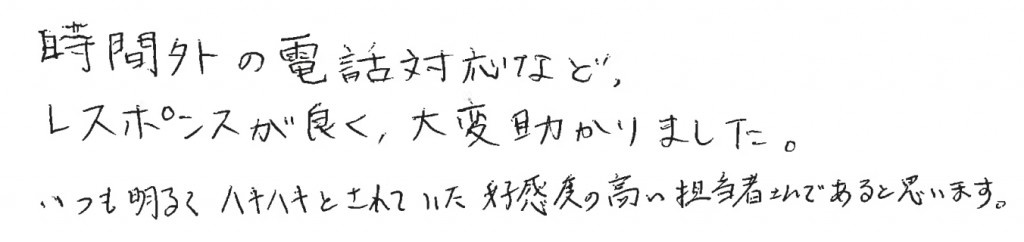 時間外の電話対応など,
レスポンスが良く,大変助かりました。
いつも明るくハキハキとされていた好感度の高い担当者さんであると思います。